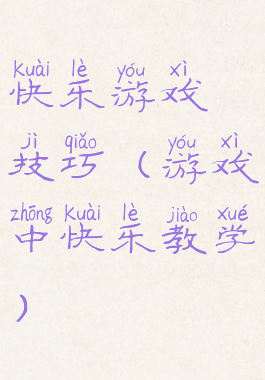 kuài lè yóu xì
快乐游戏
jì qiǎo yóu xì
技巧（游戏
zhōng kuài lè jiào xué
中快乐教学
）